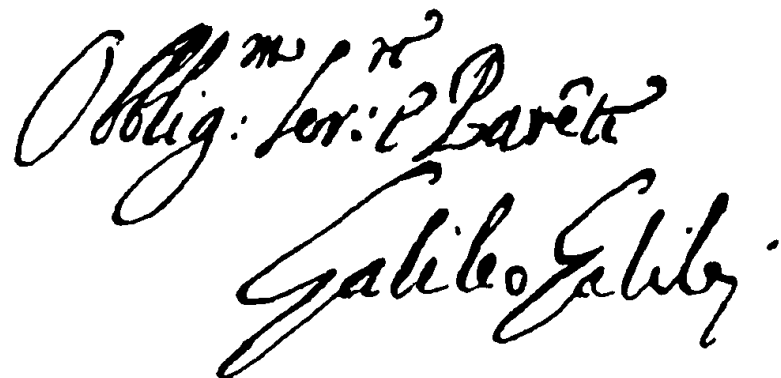 Obblig:mo Ser:re e Parẽte
Galileo Galilei